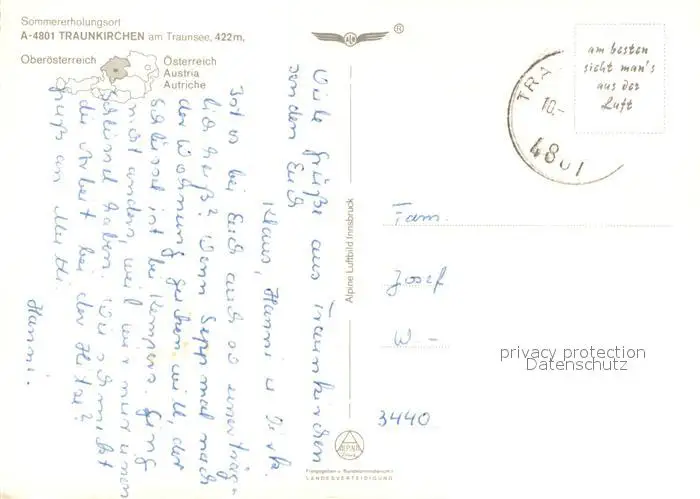 Sommererholungsort
A-4801 TRAUNKIRCHEN am Traunsee, 422m,
Oberösterreich
Österreich
Austria
Autriche
®
am besten
sieht man's
aus der
Luft
TRA
10.-
4801
Viele Grüße aus Traunkirchen
senden Euch
Klaus, Hanni u. Dirk.
Ist es bei Euch auch so unerträg-
lich heiß? Wenn Sepp mal nach
der Wohnung gucken will, der
Schlüssel ist bei Kempers. Ging
nicht anders, weil wir nur einen
Schlüssel haben. Wie schmeckt
die Arbeit bei der Hitze?
Gruß an Mutti
Hanni.
Alpine Luftbild Innsbruck
Fam.
Josef
W -
3440
privacy protection
Datenschutz
ALPINE
Freigegeben v. Bundesministerium f.
LANDESVERTEIDIGUNG